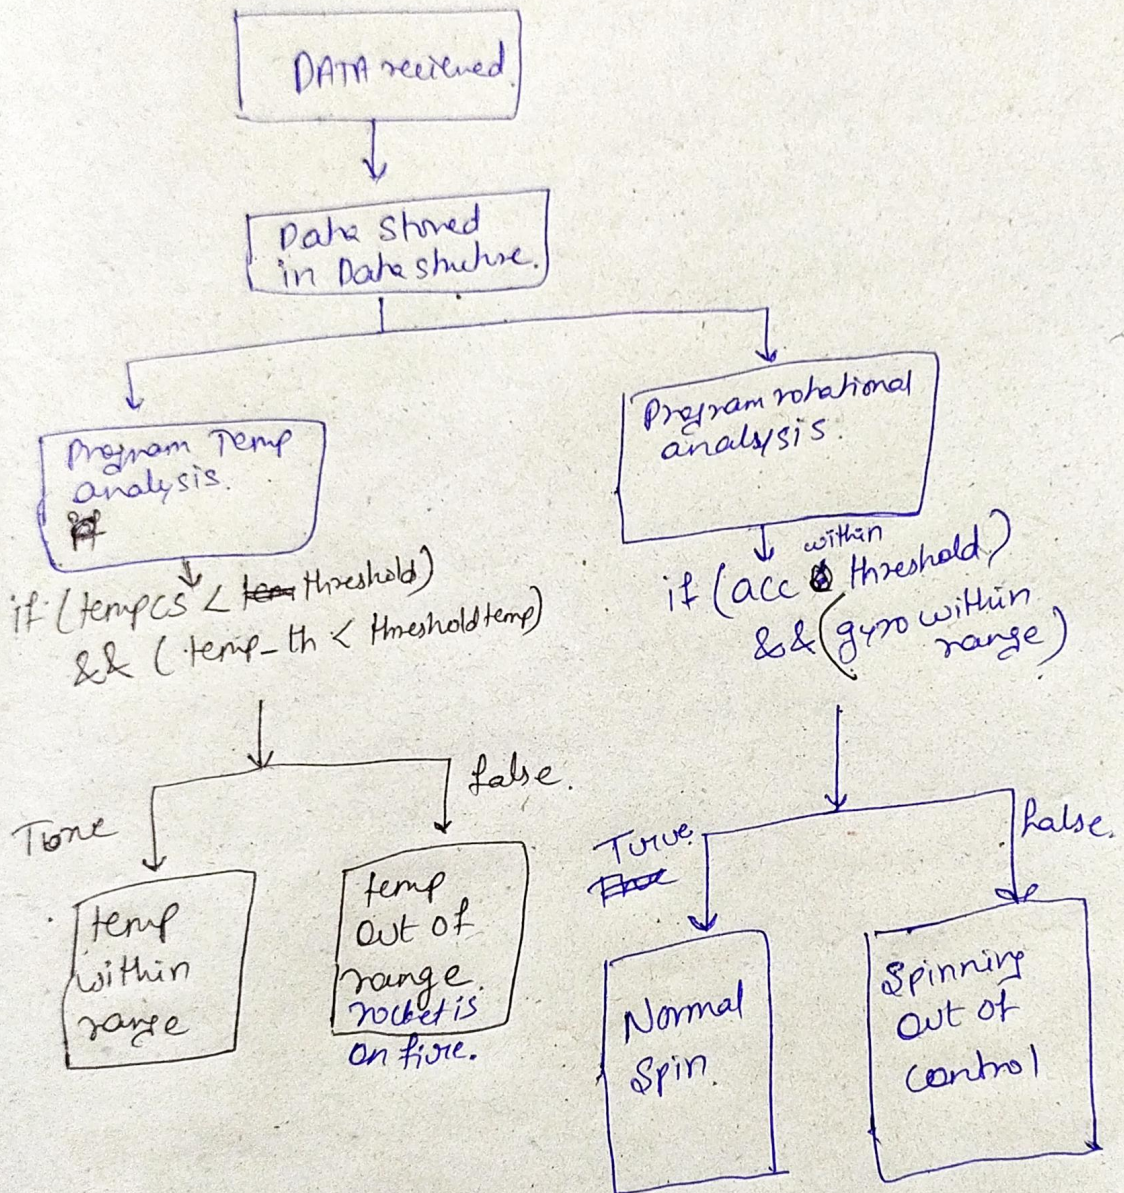 DATA recieved.
Data Stored
in Data structure.
Program Temp
analysis.
if (tempcs < threshold)
&& (temp_th < threshold temp)
True
false.
temp
within
range
temp
out of
range.
rocket is
on fire.
Program rotational
analsysis.
within
if (acc threshold)
&& (gyro within
range)
True.
false.
Normal
Spin.
Spinning
out of
control